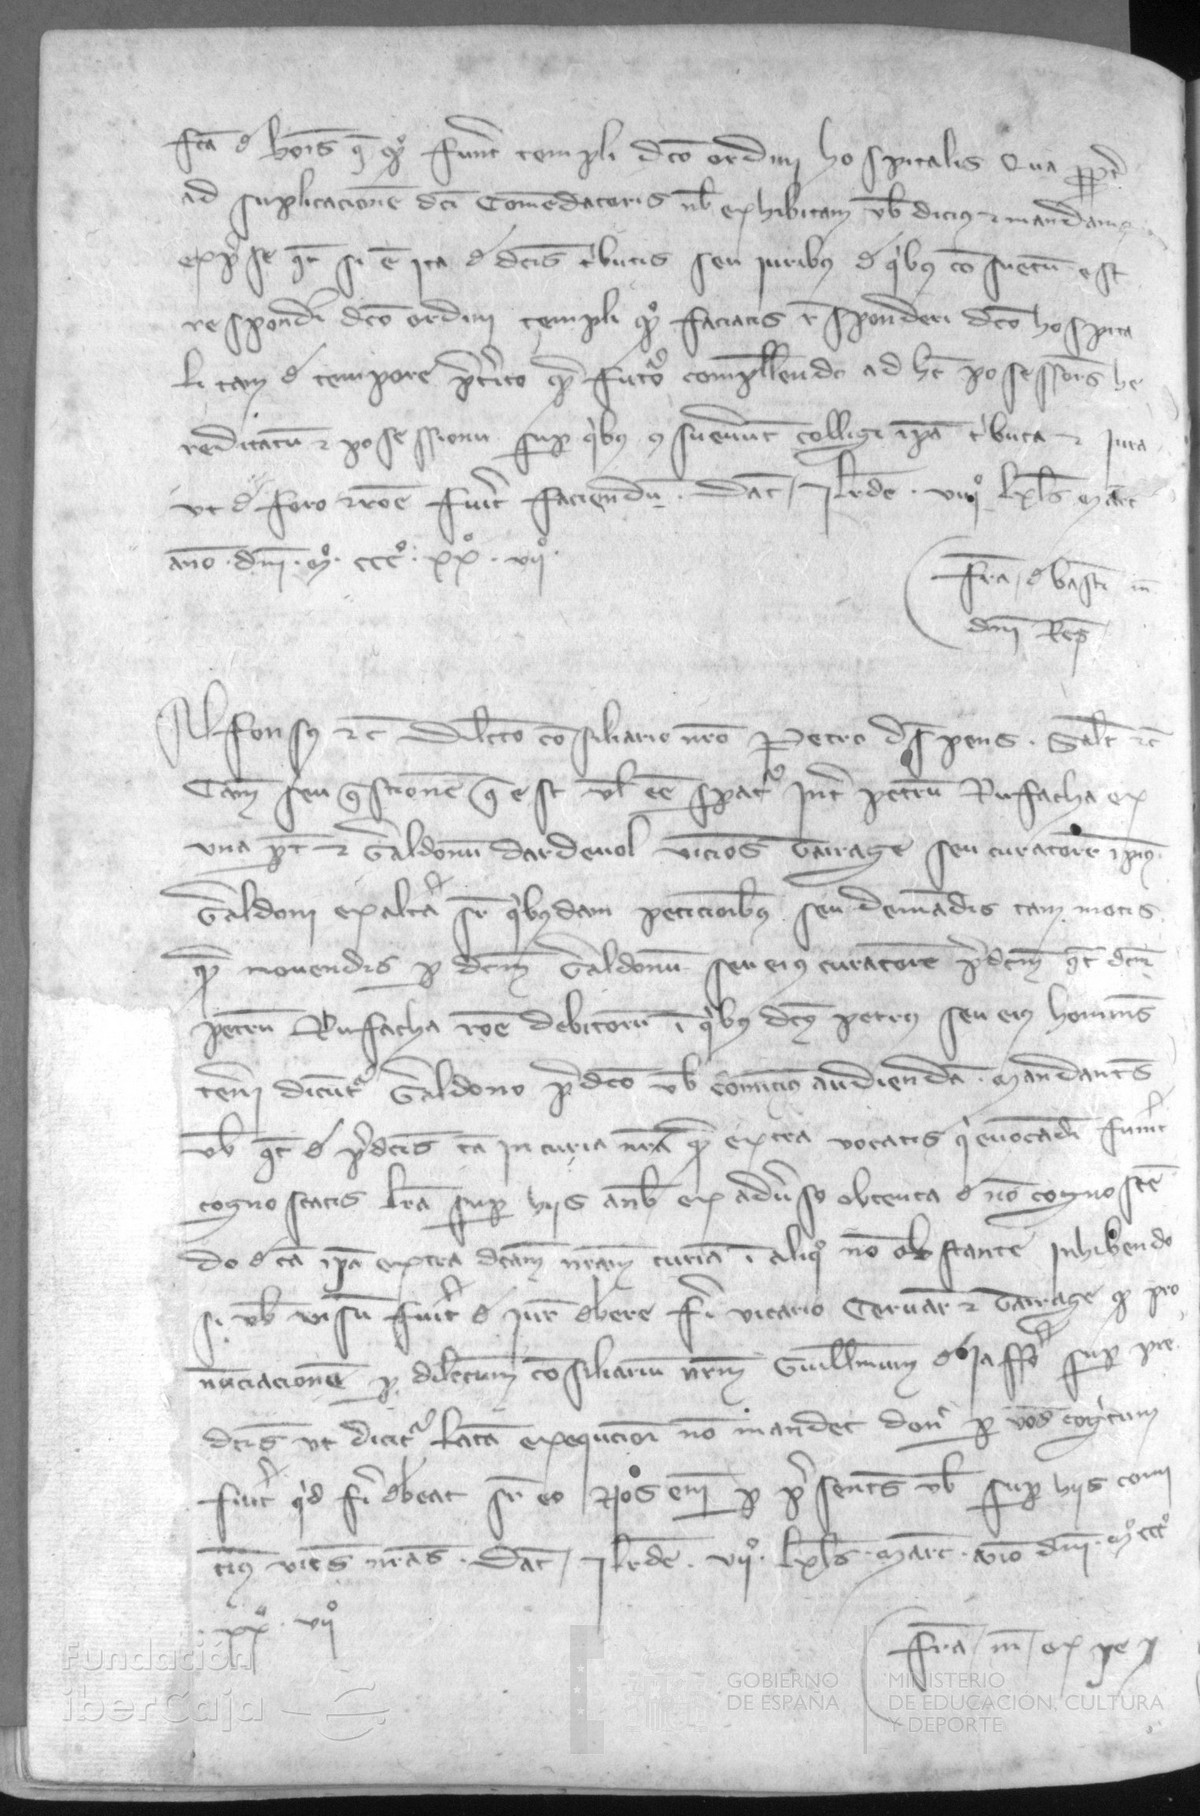 fca de bonis que quondam fuerunt templi dco ordini hospitalis Qua ppt
ad suplicacione dci Comendatoris nob exhibitam vob dicim et mandam
expsse qt si e ita de dcis tibutis seu iuribus de qibus cosuetu est
responderi dco ordini templi qo faciatis rsponderi dco hospita
li tam de tempore pterito qm futo compellendo ad hc posessors he
reditatu et posessionu sup qibus csueuerut colligi ipa tibuta et iura
ut de foro et roe fuit faciendu. Dat Ilrde. viiº klns Marc
ano. dni. mº. cccº. xxº. viiº.
Fra de basti m
dni Reg
Alfonsus etc Dilecto cosiliario nro Petro despens. Salt etc
Cam seu qstione que est ul ee spat int petru Ruffacha ex
una pt et Gialdonu dardeuol vicios Tarrage seu curatore ipius
Gialdoni ex alta sr qibusdam peticioibus seu demadis tam motis
qm mouendis p dcm Gialdonu seu eius curatore pdcm qt dcm
petru Ruffacha roe debitoru i qibus dcs petrus seu eius homins
teni dicut Gialdono pdco vob comictim audienda. mandants
vob qt de pdcis ta in curia nra qm extra vocatis qi euocadi fuint
cognoscatis lra sup hiis anb ex aduso obtenta de no cognosce
do de ca ipa extra dcam nram curia i aliqo no obstante inhibendo
si vob visu fuit de iur debere fi vicario Ceruar et Tarrage qd pro
nuciacione p dilectum cosiliariu nrm Guillmum de Jaffo sup pre
dcis ut dicit lata exequcioi no mandet don p vos cogitum
fuit qid fi debeat sr eo Nos eni p psents vob sup hiis comi
tim vics nras. Dat Ilrde. viiº. klns. Marc. ano dni. mº cccº
. xxº. viiº
Fra m ex pe
Fundación
iberCaja
GOBIERNO
DE ESPAÑA
MINISTERIO
DE EDUCACIÓN, CULTURA
Y DEPORTE